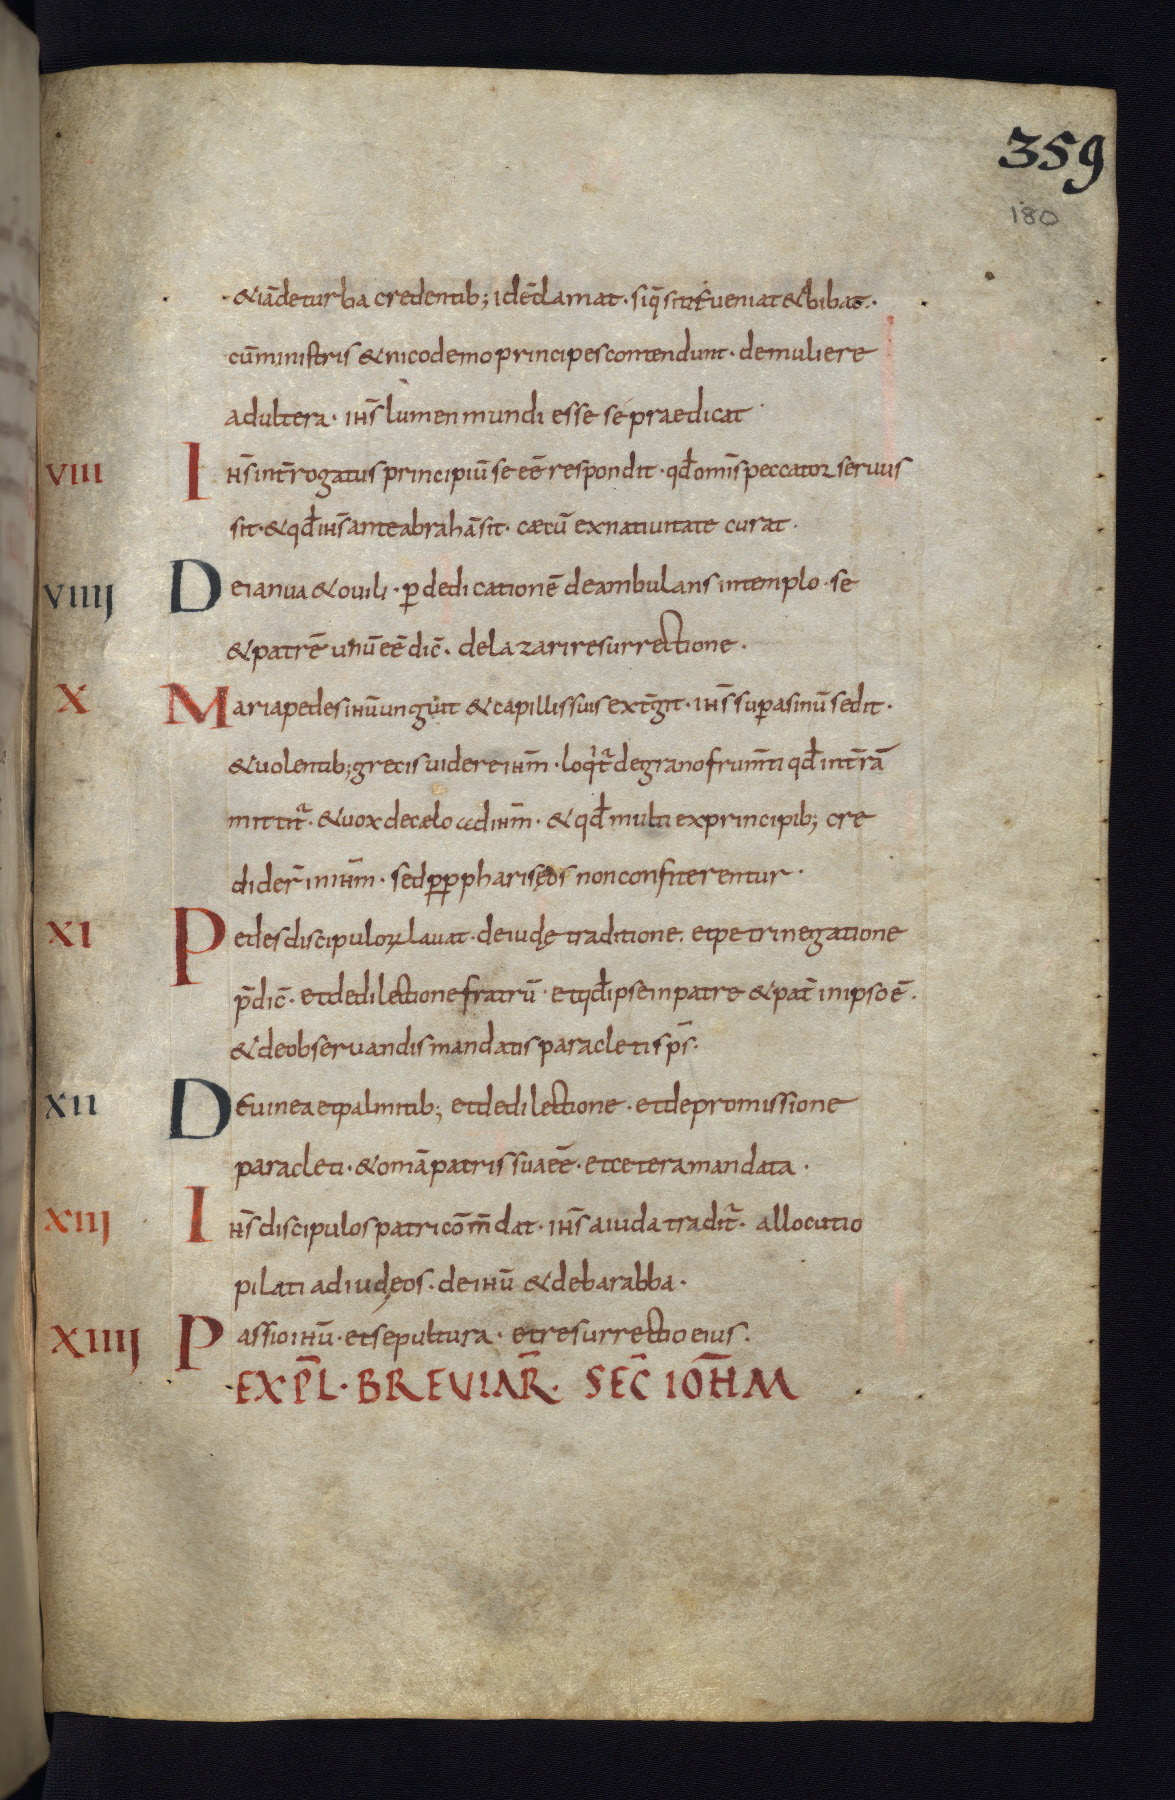 359
180
& iā de turba credentib; idē clamat · siq̄s sitit veniat & bibat ·
cū ministris & nicodemo principes contendunt · de muliere
adultera · ihs̄ lumen mundi esse se praedicat ·
VIII Ihs̄ int̄rogatus principiū se eē respondit · qd̄ omīs peccator servus
sit · & qd̄ ihs̄ ante abrahā sit · cæcū ex nativitate curat ·
VIIIJ De ianua & ovili · ꝑ dedicationē deambulans in templo · se
& patrē unū eē dic̄ · de lazari resurrectione ·
X Maria pedes ihū unguit & capillis suis ext̄git · ihs̄ suꝑ asinū sedit ·
& volentib; grecis videre ihm̄ · loq̇t̄ de grano frum̄ti qd̄ in t̄rā
mittit̄ · & vox de cælo ad ihm̄ · & qd̄ multi ex principib; cre
dider̄ in ihm̄ · sed ꝓꝑ pharisęos non confiterentur ·
XI Pedes discipuloꝝ lavat · de iudę traditione · et petri negatione
p̄dic̄ · et de dilectione fratrū · et qd̄ ipse in patre & pat̄ in ipso ē ·
& de observandis mandatis paracleti sp̄s ·
XII De vinea et palmitib; et de dilectione · et de promissione
paracleti · & omā patris sua eē · et cetera mandata ·
XIIJ Ihs̄ discipulos patri cōm̄dat · ihs̄ a iuda tradit̄ · allocutio
pilati ad iudęos · de ihū & de barabba ·
XIIIJ Passio ihū · et sepultura · et resurrectio eius ·
EXPL̄ · BREVIAR̄ · SEC̄ IOH̄M